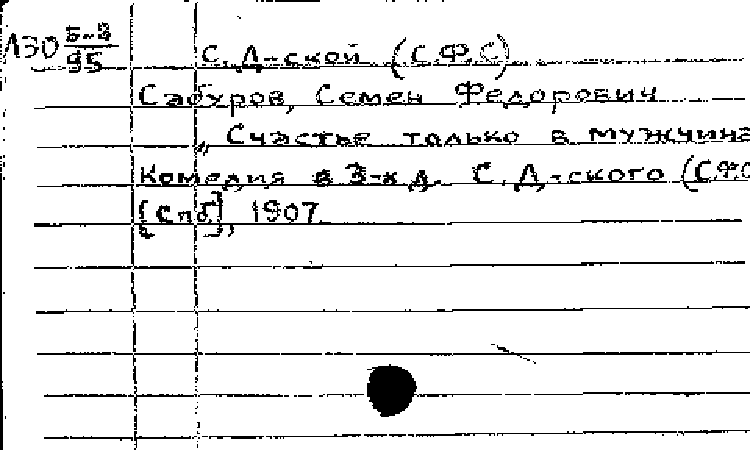 Л30 Б-3/95
С. Д-ской (С.Ф.С)
Сабуров, Семен Федорович
„ Счастье только в мужчина
Комедия в 3-х д. С. Д-ского (С.Ф.С
[Спб], 1907